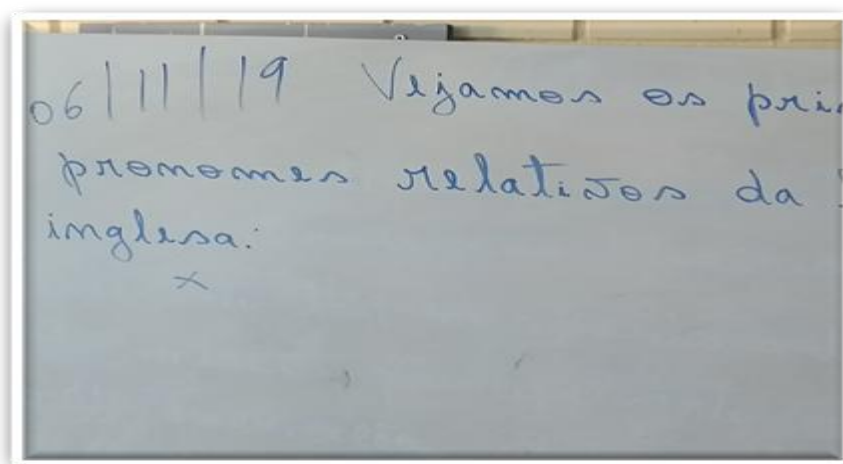 06/11/19 Vejamos os
pronomes relativos da
inglesa:
x